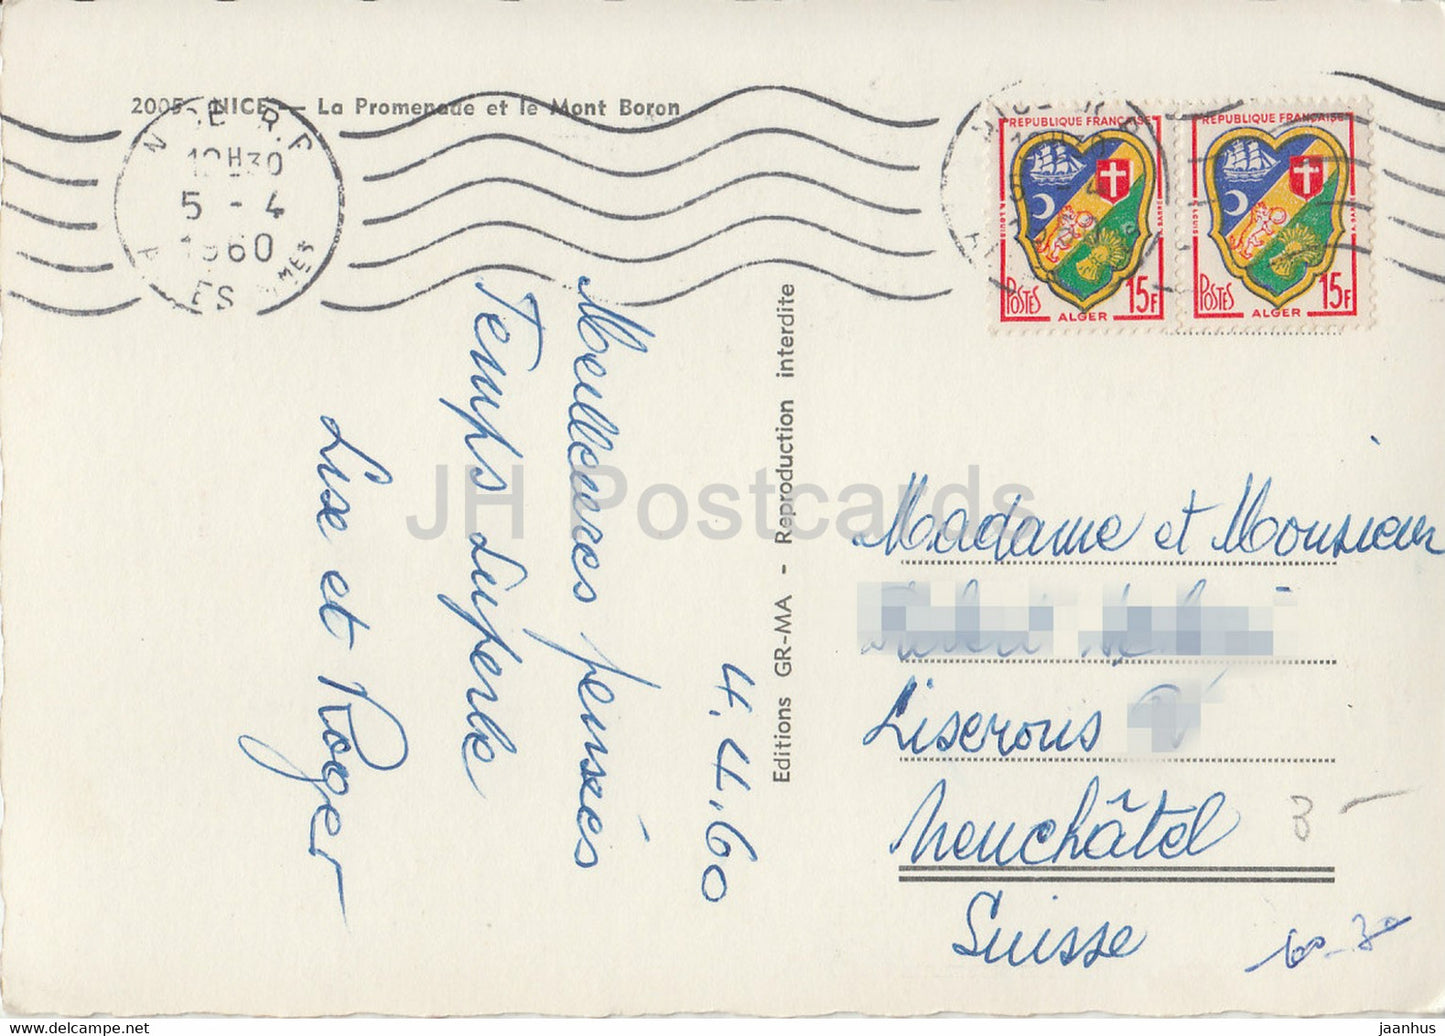 2005 - NICE — La Promenade et le Mont Boron
NICE R.P.
12H30
5 - 4
1960
ALPES MMES
REPUBLIQUE FRANÇAISE
POSTES
ALGER
15F
REPUBLIQUE FRANÇAISE
POSTES
ALGER
15F
4.4.60
Meilleures pensées
Temps superbe
Lise et Roger
Editions GR-MA - Reproduction interdite
JH Postcards
Madame et Monsieur
Liserons
Neuchâtel
Suisse
3 -
www.delcampe.net
jaanhus